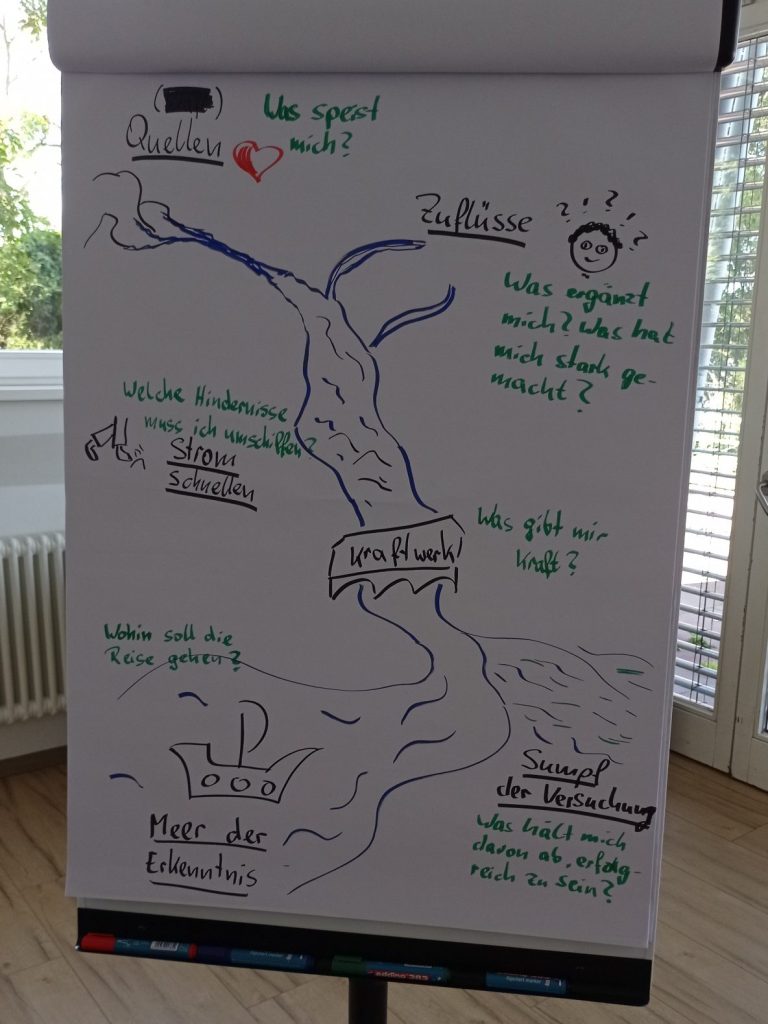 Quellen
Was speist
mich?
Zuflüsse
? ? ? ?
Was ergänzt
mich? Was hat
mich stark ge-
macht?
Welche Hindernisse
muss ich umschiffen?
Strom
schnellen
Kraftwerk
Was gibt mir
Kraft?
Wohin soll die
Reise gehen?
Meer der
Erkenntnis
Sumpf
der Versuchung
Was hält mich
davon ab, erfolg-
reich zu sein?
edding 383